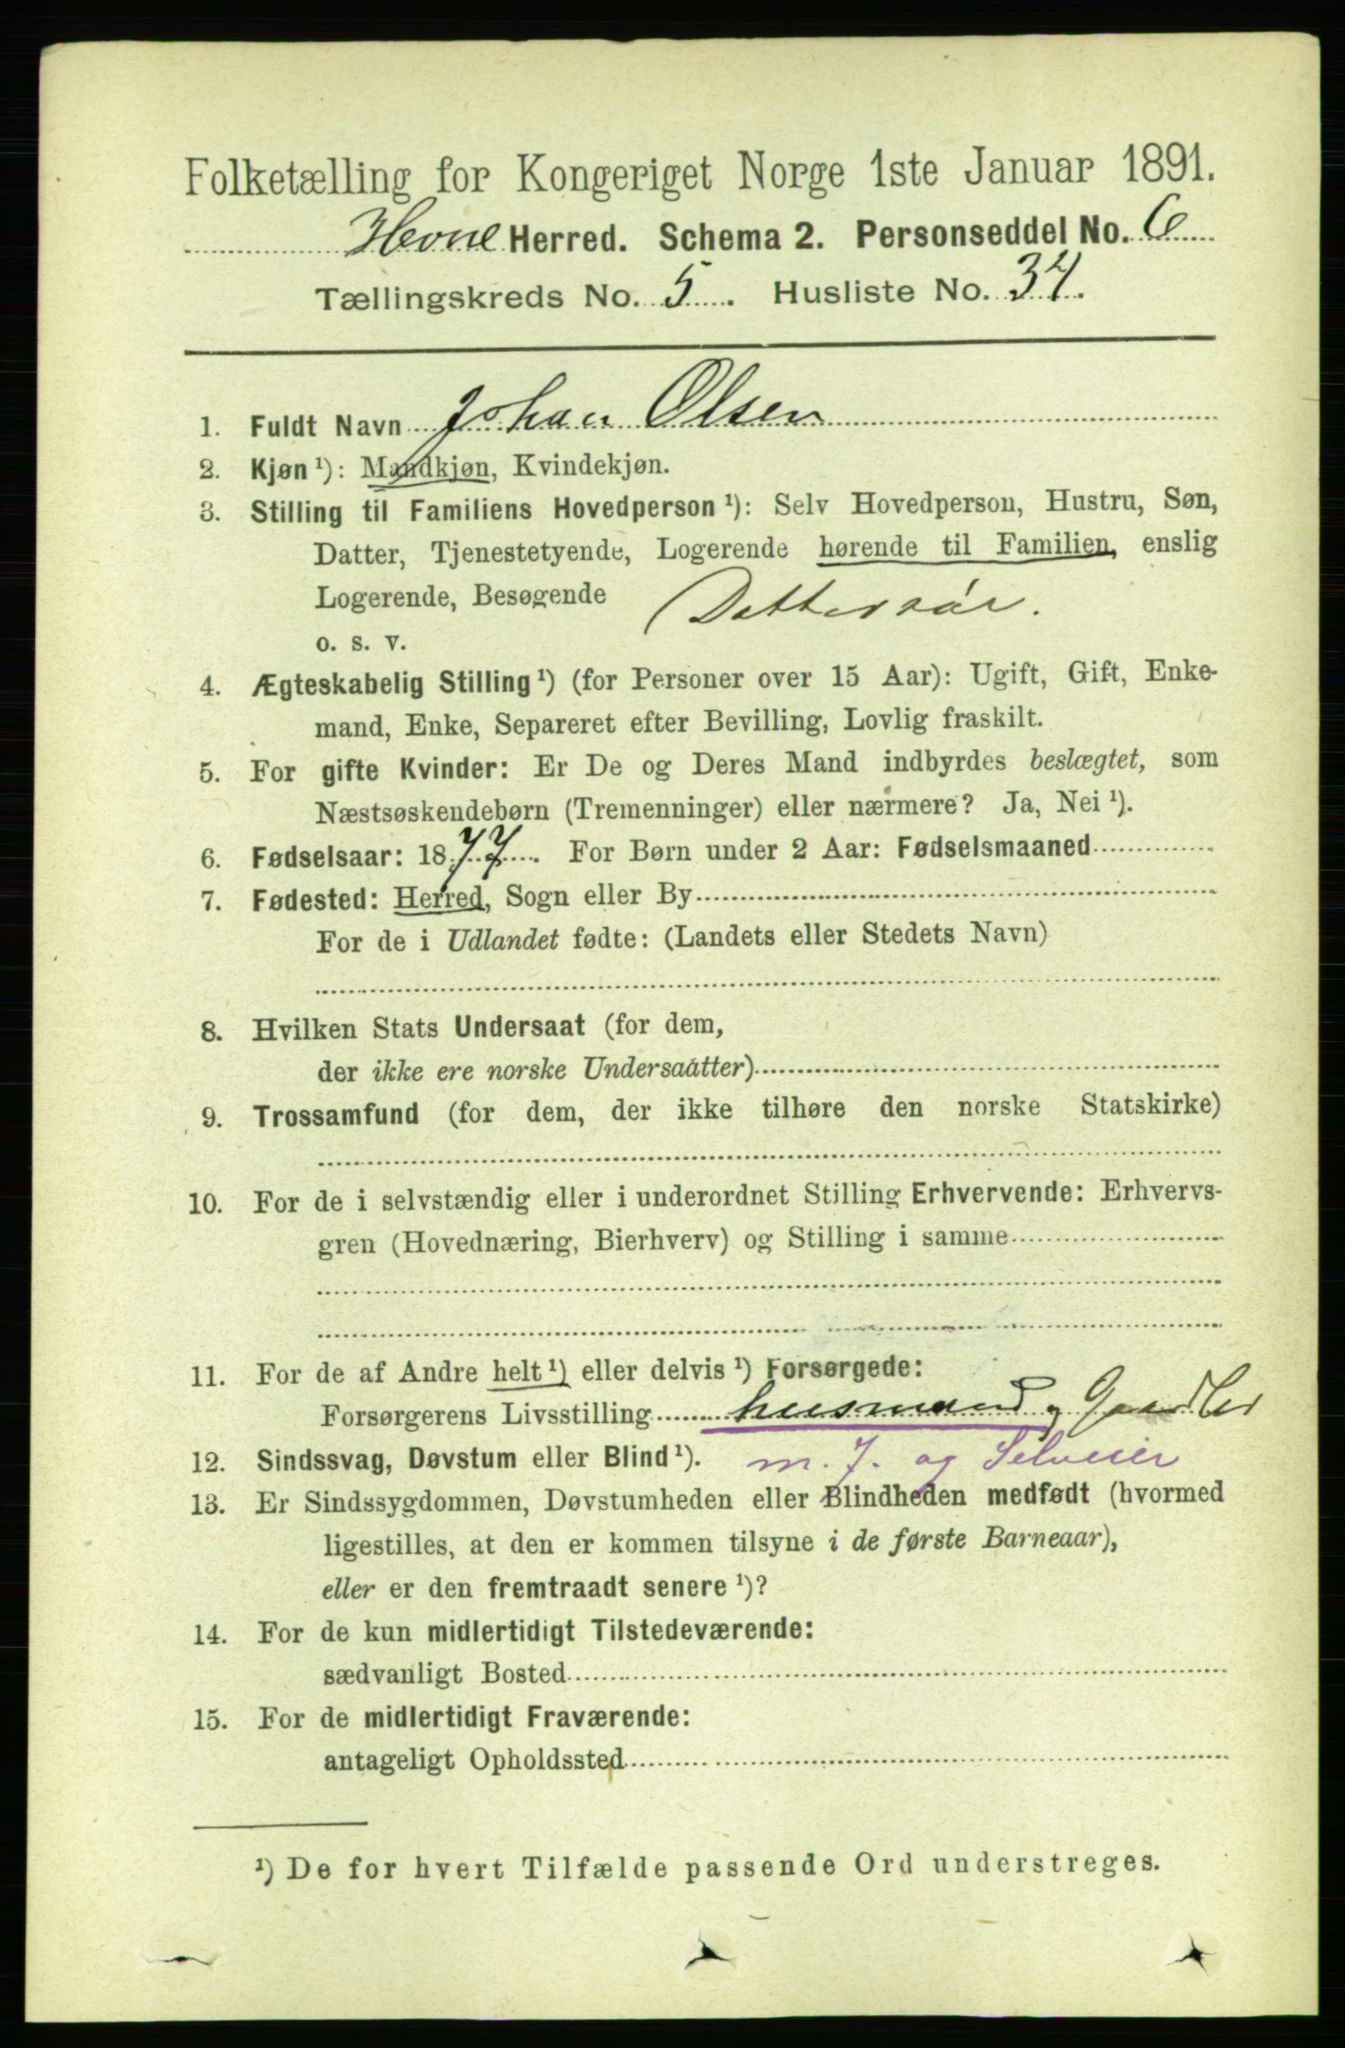 Folketælling for Kongeriget Norge 1ste Januar 1891.
Hevne Herred. Schema 2. Personseddel No. 6
Tællingskreds No. 5. Husliste No. 34.
1. Fuldt Navn Johan Olsen
2. Kjøn ¹): Mandkjøn, Kvindekjøn.
3. Stilling til Familiens Hovedperson ¹): Selv Hovedperson, Hustru, Søn,
Datter, Tjenestetyende, Logerende hørende til Familien, enslig
Logerende, Besøgende Dattersøn.
o. s. v.
4. Ægteskabelig Stilling ¹) (for Personer over 15 Aar): Ugift, Gift, Enke-
mand, Enke, Separeret efter Bevilling, Lovlig fraskilt.
5. For gifte Kvinder: Er De og Deres Mand indbyrdes beslægtet, som
Næstsøskendebørn (Tremenninger) eller nærmere? Ja, Nei ¹).
6. Fødselsaar: 1877. For Børn under 2 Aar: Fødselsmaaned
7. Fødested: Herred, Sogn eller By
For de i Udlandet fødte: (Landets eller Stedets Navn)
8. Hvilken Stats Undersaat (for dem,
der ikke ere norske Undersaatter)
9. Trossamfund (for dem, der ikke tilhøre den norske Statskirke)
10. For de i selvstændig eller i underordnet Stilling Erhvervende: Erhvervs-
gren (Hovednæring, Bierhverv) og Stilling i samme
11. For de af Andre helt ¹) eller delvis ¹) Forsørgede:
Forsørgerens Livsstilling husmand
12. Sindssvag, Døvstum eller Blind ¹). m. J. og Selveier
13. Er Sindssygdommen, Døvstumheden eller Blindheden medfødt (hvormed
ligestilles, at den er kommen tilsyne i de første Barneaar),
eller er den fremtraadt senere ¹)?
14. For de kun midlertidigt Tilstedeværende:
sædvanligt Bosted
15. For de midlertidigt Fraværende:
antageligt Opholdssted
¹) De for hvert Tilfælde passende Ord understreges.